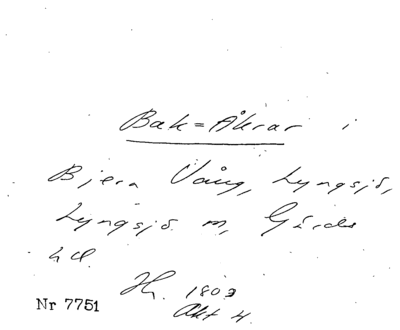 Bak=Åkrar i
Bjera Vång, Lyngsjö,
Lyngsjö sn, Gärds
hd.
Hr. 1803
Akt 4.
Nr 7751